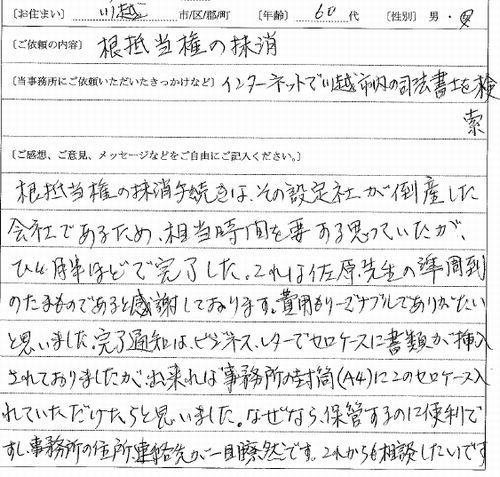 〔お住まい〕 川越 市/区/郡/町 〔年齢〕 60 代 〔性別〕 男・女
〔ご依頼の内容〕 根抵当権の抹消
〔当事務所にご依頼いただいたきっかけなど〕 インターネットで川越市内の司法書士を検
索
〔ご感想、ご意見、メッセージなどをご自由にご記入ください。〕
根抵当権の抹消手続きは、その設定社が倒産した
会社であるため、相当時間を要する思っていたが、
ひと月半ほどで完了した。これは佐原先生の準周到
のたまものであると感謝しております。費用もリーズナブルでありがたい
と思いました。完了通知は、ビジネスレターでセロケースに書類が挿入
されておりましたが、出来れば事務所の封筒(A4)にこのセロケース入
れていただけたらと思いました。なぜなら、保管するのに便利で
すし、事務所の住所、連絡先が一目瞭然です。これからも相談したいです